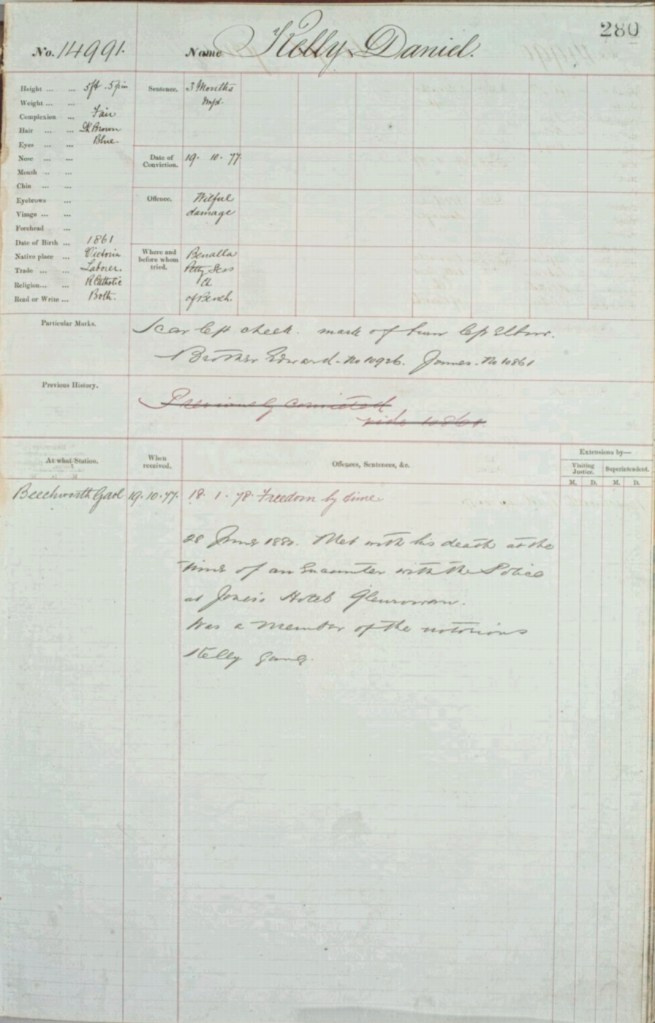 280
No. 14991. Name Kelly Daniel.
Height 5ft 5 in
Weight
Complexion Fair
Hair Dk Brown
Eyes Blue
Nose
Mouth
Chin
Eyebrows
Visage
Forehead
Date of Birth 1861
Native place Victoria
Trade Laborer
Religion R Catholic
Read or Write Both
Sentence. 3 Months
Impt
Date of Conviction. 19. 10. 77
Offence. Wilful
damage
Where and before whom tried. Benalla
Petty Sess
of Bench
Particular Marks. Scar left cheek. mark of burn left Elbow.
Brother Edward - No 10926. James - No 10861
Previous History. Previously convicted
vide 10861
At what Station. When received. Offences, Sentences, &c. Extensions by—
Visiting Justice. Superintendent.
M. D. M. D.
Beechworth Gaol 19.10.77 18. 1. 78 Freedom by time
28 June 1880. Met with his death at the
time of an Encounter with the Police
at Jones's Hotel Glenrowan.
Was a member of the notorious
Kelly Gang.